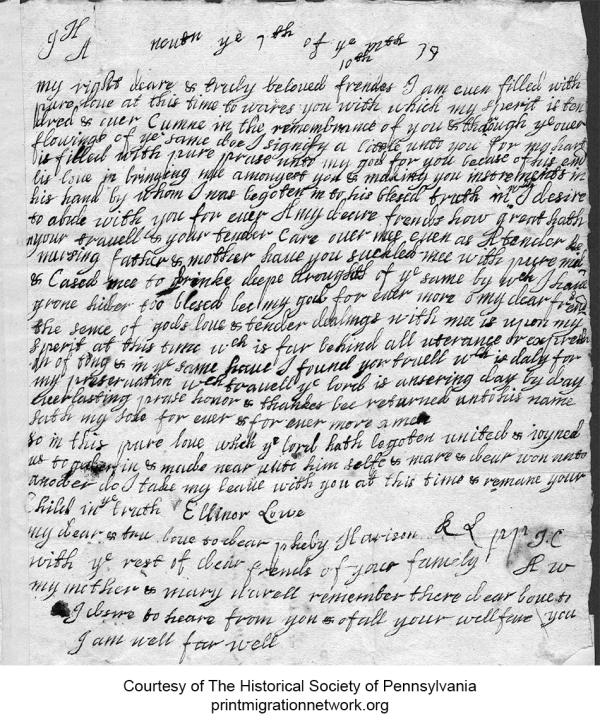 J H
A
newtn ye 7th of ye 10th mth 79
my right deare & truly beloved frendes I am even filled with
pure love at this time towares you with which my sperit is ten
dred & over Cumne in the remembrance of you & through ye over
flowings of ye same doe I signify a little unto you for my hart
is filled with pure prase unto my god for you becuse of his end
lis love in bringing mee amongest you & making you instrements in
his hand by whom I was begoten in to his blesed truth in wch I desire
to abide with you for ever A my deare frends how great hath
your travell & your tender Care over mee even as A tender
nursing father & mother have you suckled mee with pure milk
& Cased mee to drinke deepe droughts of ye same by wch I have
grone hither too blesed bee my god for ever more o my dear frends
the sence of gods love & tender dealings with mee is upon my
sperit at this time wch is far behind all uterance or expresi
on of tung & in ye same have I found your travell wch is daly for
my preservation wch travell ye lord is ansering day by day
everlasting prase honor & thankes bee returned unto his name
sath my sole for ever & for ever more amen
so in this pure love which ye lord hath begoten united & joyned
us to gather in & made near unto him selfe & mare & dear won unto
another do I take my leave with you at this time & remane your
Child in ye truth Ellinor Lowe
my dear & tru love to dear pheby Harison & L pp J.C
with ye rest of dear frends of your family A W
my mother & mary warell remember there dear love to
I desire to heare from you & of all your wellfare you
I am well far well
Courtesy of The Historical Society of Pennsylvania
printmigrationnetwork.org